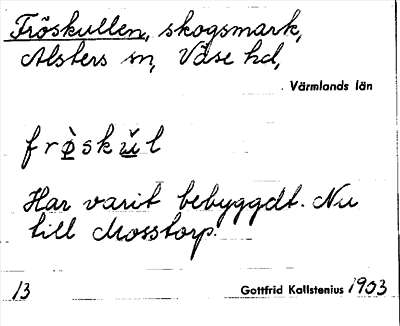 Fröskullen, skogsmark,
Alsters sn, Väse hd,
Värmlands län
frø̀skŭl
Har varit bebyggdt. Nu
till Mosstorp.
13 Gottfrid Kallstenius 1903